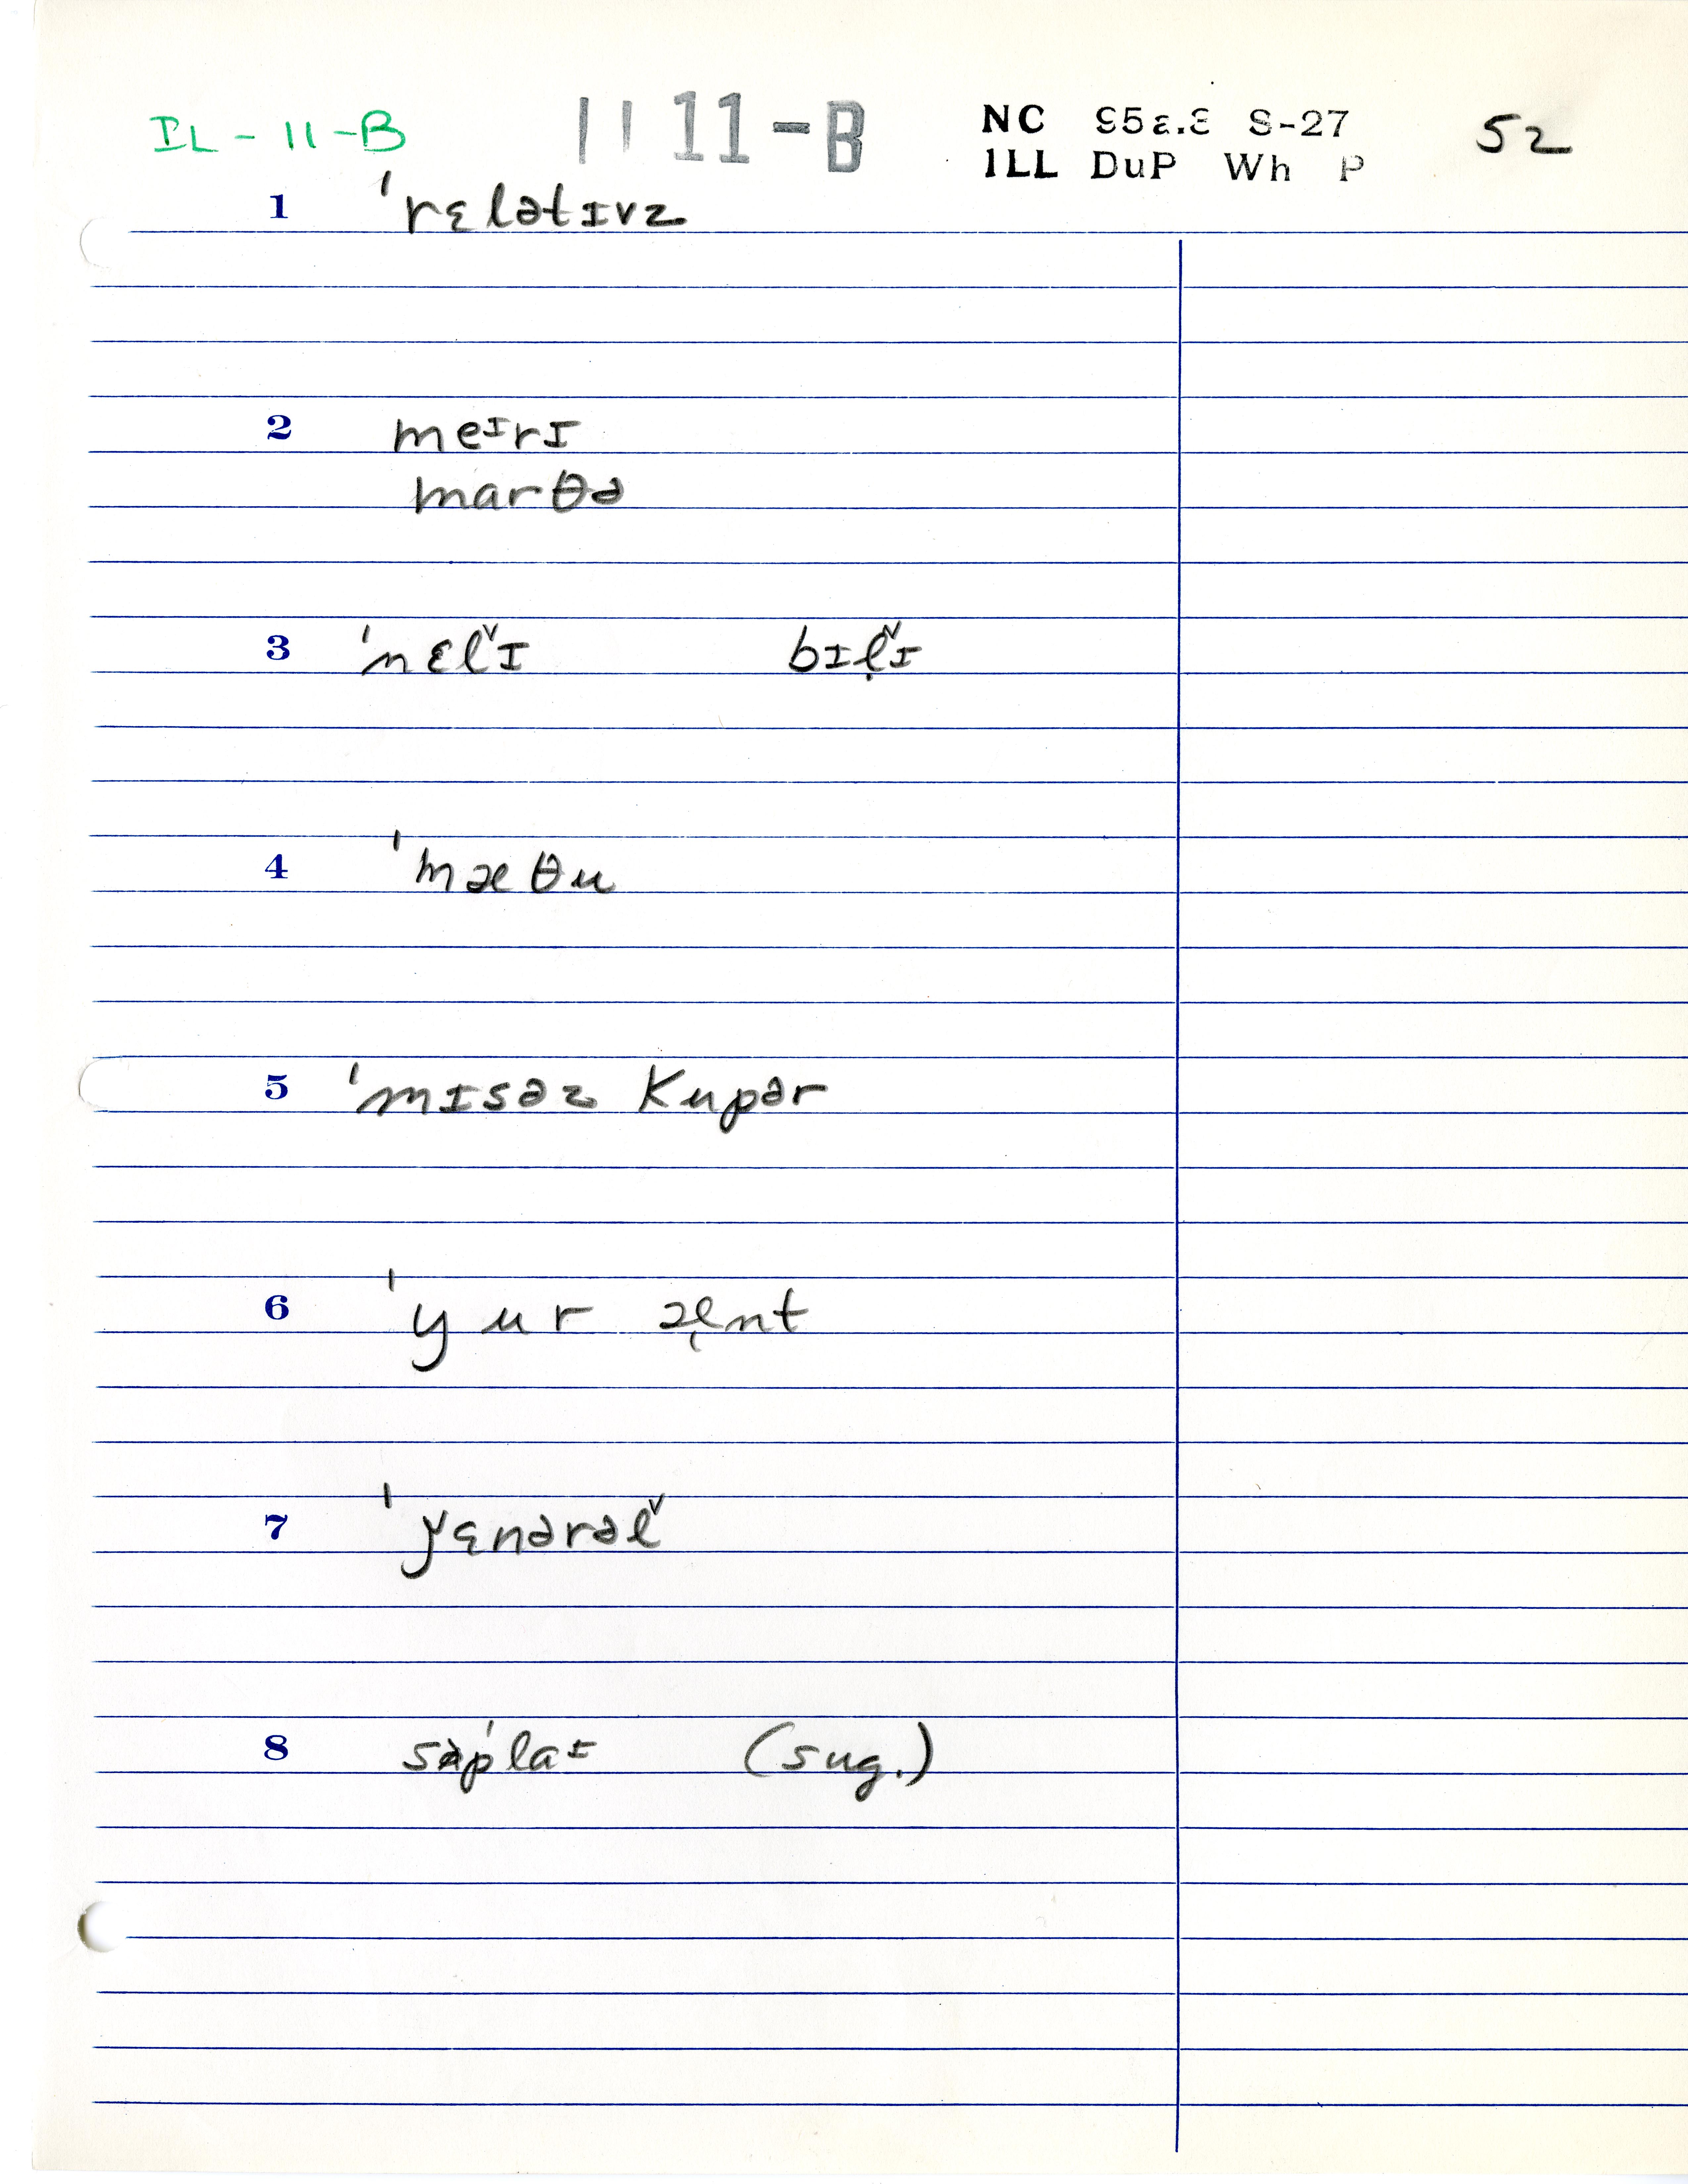 IL-11-B 11 11-B NC 95ε.3 S-27 52
ILL DuP Wh P
1 ˈrɛlətɪvz
2 meᴵrɪ
marθə
3 ˈnɛlˇɪ bɪḷˇɪ
4 ˈmæθu
5 ˈmɪsəz Kupər
6 ˈyur æ̨nt
7 ˈǰɛnərəlˇ
8 səpˈlaᴵ (sug.)